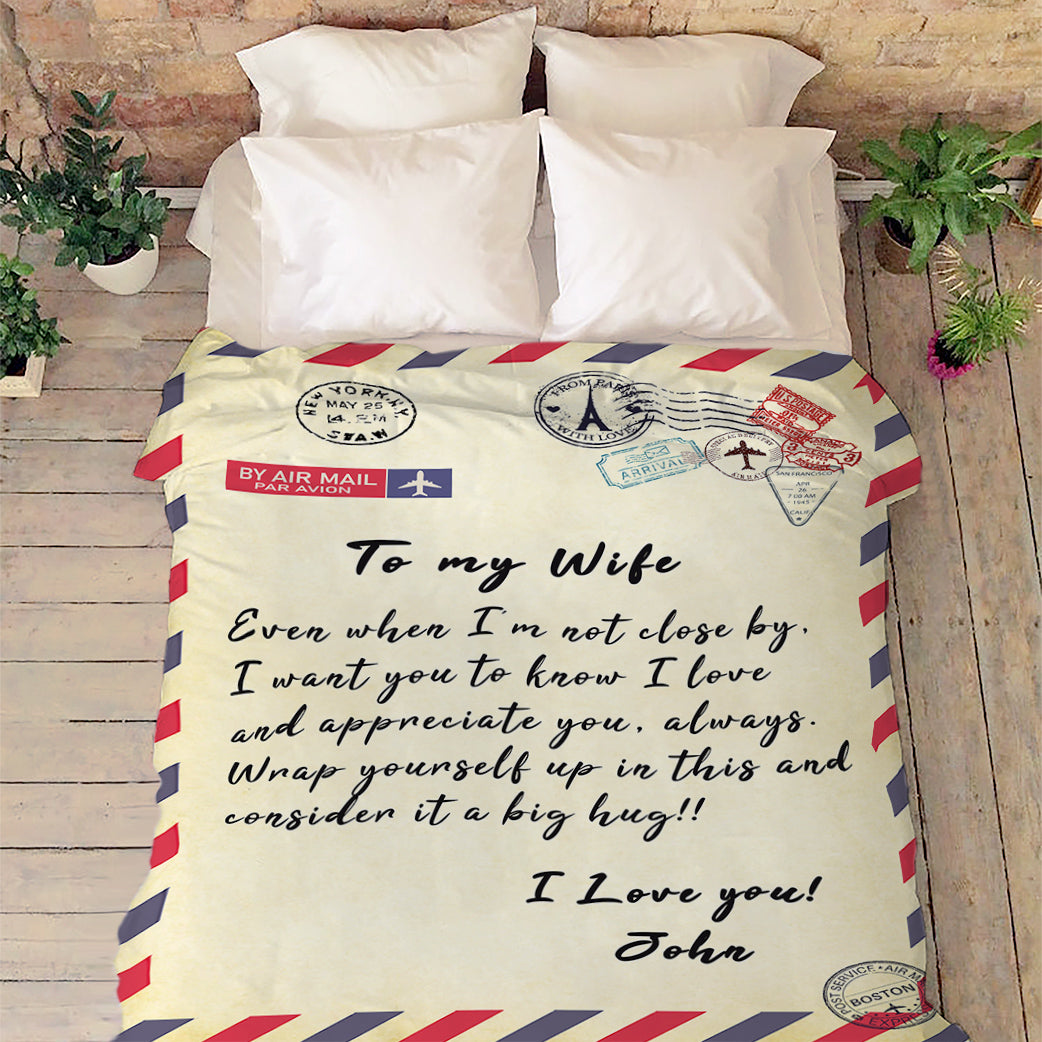 NEW YORK, N.Y.
MAY 25
STA.N
FROM PARIS
WITH LOVE
U.S. POSTAGE
ARRIVAL
SPECIAL DELIVERY
AIR MAIL
3
3
SAN FRANCISCO
APR
26
7:00 AM
1945
CALIF.
BY AIR MAIL
PAR AVION
To my Wife
Even when I'm not close by,
I want you to know I love
and appreciate you, always.
Wrap yourself up in this and
consider it a big hug!!
I Love you!
John
POST SERVICE • AIR M
BOSTON
EXPRE